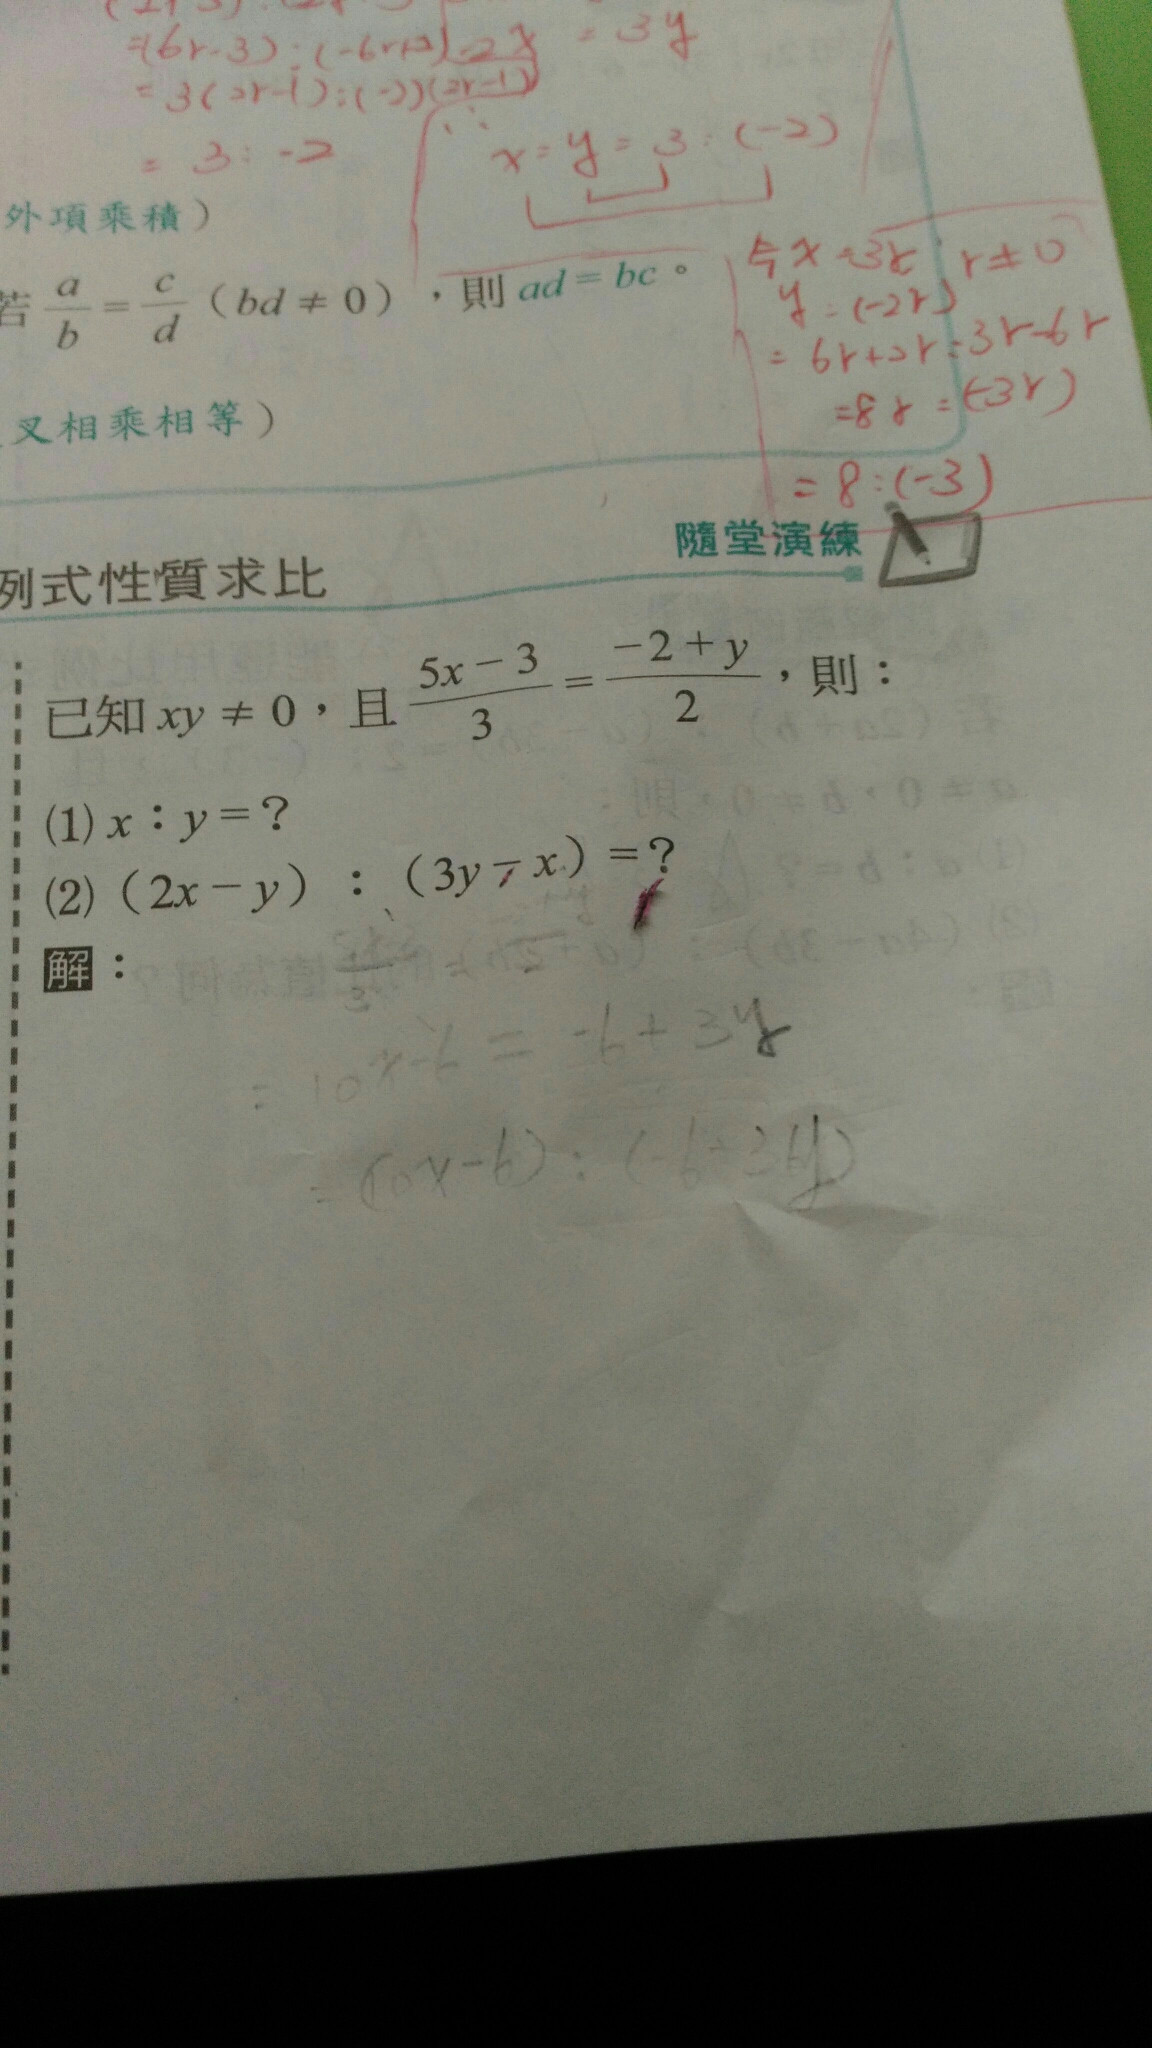 =(6r-3):(-6r+3)
2x = 3y
=3(2r-1):(-2)(2r-1)
= 3: -2
∴ x=y=3:(-2)
外項乘積）
若 a/b = c/d（bd ≠ 0），則 ad = bc。
叉相乘相等）
今x=3r, r≠0
y=(-2r)
= 6r+2r:3r-6r
=8r=(-3r)
= 8:(-3)
隨堂演練
列式性質求比
已知 xy ≠ 0，且 5x－3/3 = －2＋y/2，則：
(1) x：y＝？
(2)（2x－y）：（3y－x）＝？
解：
= 10x-6 = -6+3y
= (10x-6):(-6+3y)